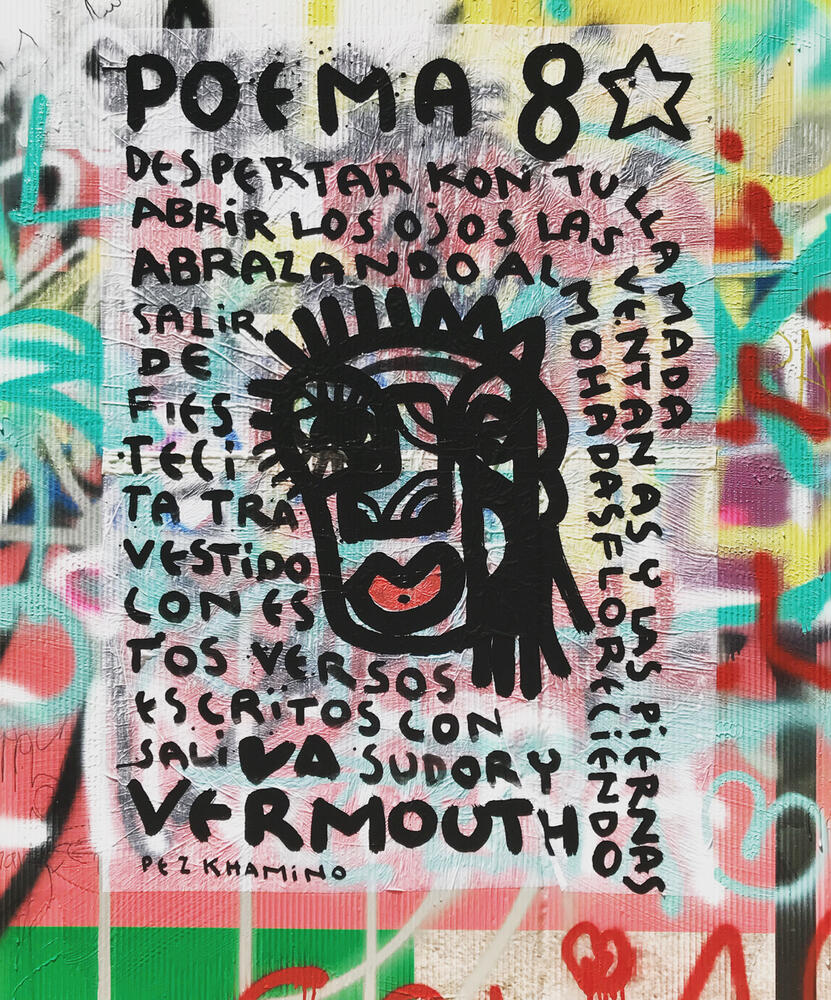 POEMA 8
DESPERTAR KON TU LLAMADA
ABRIR LOS OJOS LAS VENTANAS Y LAS PIERNAS
ABRAZANDO ALMOHADAS FLORECIENDO
SALIR
DE
FIES
TECI
TA TRA
VESTIDO
CON ES
TOS VERSOS
ESCRITOS CON
SALIVA SUDOR Y
VERMOUTH
PEZKHAMINO